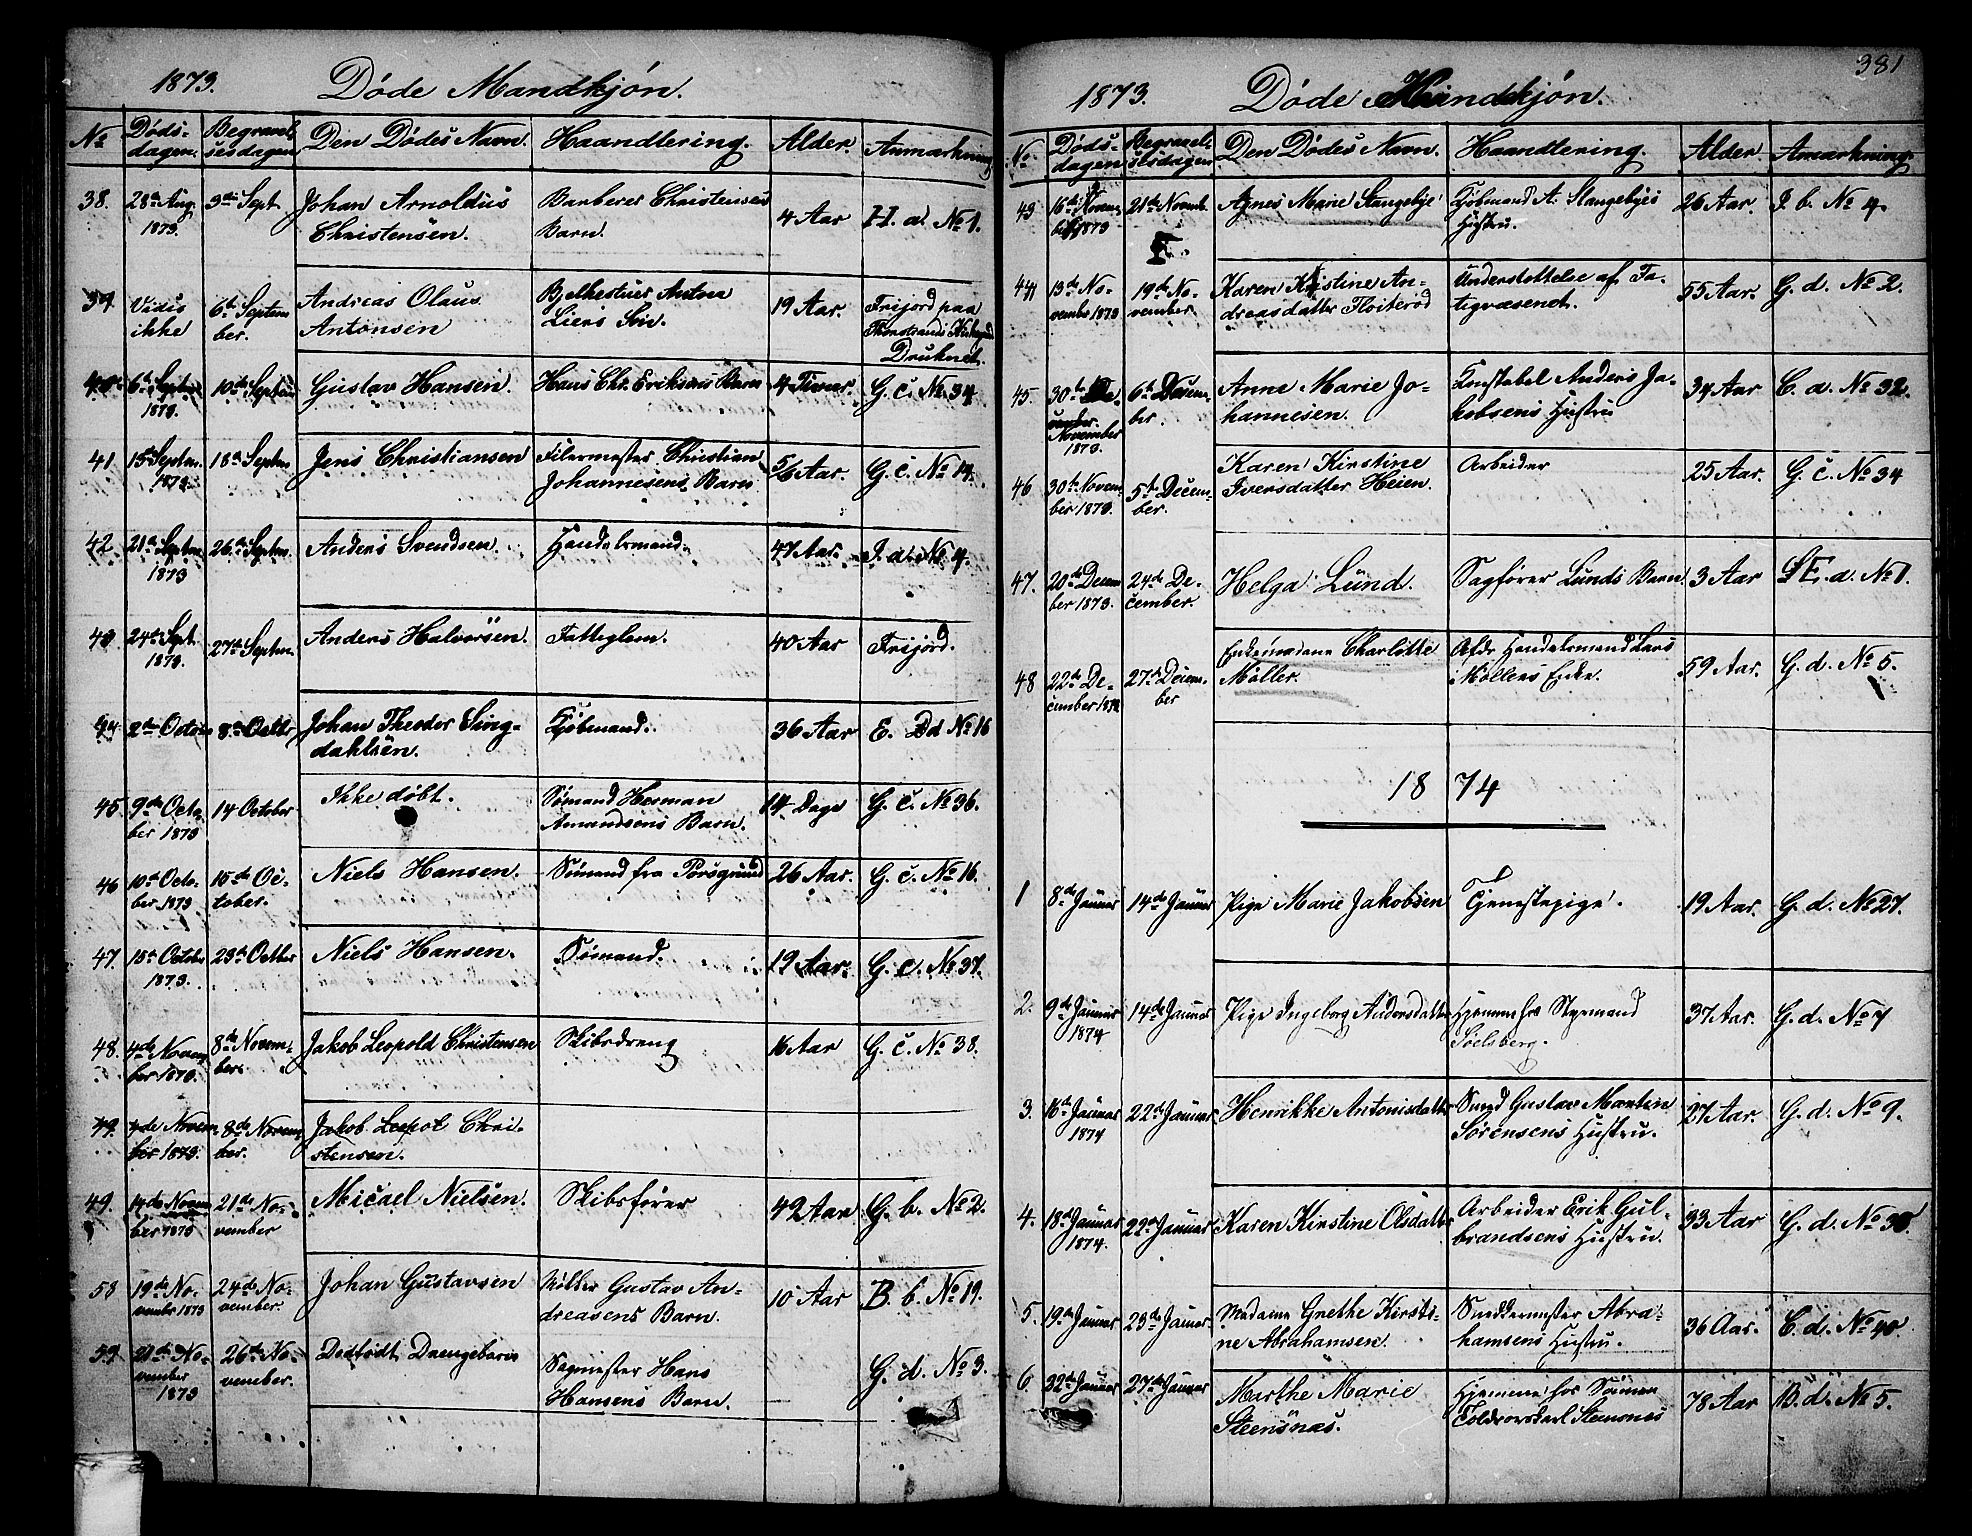 1873. Døde Mandkjøn.
No Døds-dagen. Begravelsesdagen Den Dødes Navn. Haandtering. Alder. Anmærkning
38. 28de Aug. 1873. 3die Sept. Johan Arnoldus Christensen. Barberer Christensens Barn. 4 Aar H. a. No 1.
39. Vides ikke 6te September. Andreas Olaus Antonsen Søn. 19 Aar. Frijord paa Druknet.
40. 6te Septbr 1873. 10de Septbr Gustav Hansen. Hans Chr. Eriksens Barn 4 Timer. G. c. No 34
41. 15 Septbr. 1873. 18de Septbr Jens Christiansen Filermester Christian Johannesens Barn 5/6 Aar. G. c. No 14.
42 21de Septbr. 1873 26te Septbr. Anders Svendsen. Handelsmand. 47 Aar. I. d. No 4.
43 24de Sept. 1873. 27de Septbr. Anders Halvorsen. Fattiglem. 40 Aar Frijord.
44 2den Octbr 8de Octbr Johan Theodor Lingdahlsen. Kjøbmand. 36 Aar E. d No 16
45. 9de October 1873 14 October Ikke døbt. Sømand Herman Amandsens Barn. 14 Dage G. c. No 36.
46 10de October 1873 15de October. Niels Hansen. Sømand fra Porsgrund 26 Aar. G. c. No 16.
47. 15de October 1873. 23de Octber Niels Hansen. Sømand. 19 Aar. G. c. No 37.
48. 4de November 1873. 8de November. Jakob Leopold Christensen Skibsdreng 16 Aar G. c. No 38.
49. 4de November 1873. 8de November. Jakob Leopol Christensen.
49. 14de November 1873 21de November Micael Nielsen. Skibsfører 42 Aar G. b. No 2.
50 19de November 1873 24de November. Johan Gustavsen Møller Gustav Andreasens Barn. 10 Aar B. b. No 19.
21de November 1873 26de November. Dødfødt Drengebarn Sagmester Hans Hansens Barn. G. d. No 3.
381
1873. Døde Kvindekjøn.
No. Døds-dagen Begravelsesdagen Den Dødes Navn. Haandtering. Alder Amærkning.
43 16de November 1873 21de Novemb. Agnes Marie Stangebye Kjøbmand A. Stangebyes Hustru. 26 Aar. I. b. No 4.
44 13de November 1873 19de November. Karen Kirstine Andreasdatter Floiterød Understøttelse af Fatigvæsenet. 55 Aar. G. d. No 2.
45. 30te November 1873. 6te December. Anne Marie Johannesen. Konstabel Anders Jakobsens Hustru 34 Aar C. d. No 32.
46 30te November 1873. 5te December. Karen Kirstine Iversdatter Heien. Arbeider 25 Aar. G. c. No 34
47. 20de December 1873. 24de December. Helga Lund. Sagfører Lunds Barn 3 Aar E. a. No 1.
48 22de December 1873 27de December Enkemadame Charlotte Møller. Afdø Handelsmand Lars Møllers Enke. 59 Aar. G. d. No 5.
1874
1 8de Januar 14de Januar Pige Marie Jakobsen Tjenestepige. 19 Aar. G. d. No 27.
2. 9de Januar 1874 14de Januar Pige Ingeborg Andersdatter Hjemme hos Styrmand Sølsberg. 37 Aar. G. d. No 7
3. 16de Januar 1874 22de Januar Henrikke Antonisdatter Smed Gustav Martin Sørensens Hustru. 27 Aar. G. d. No 9.
4. 18de Januar 1874. 22de Januar Karen Kirstine Olsdatter Arbeider Erik Gulbrandsens Hustru. 33 Aar G. d. No 38.
5. 19de Januar 23de Januar Madame Grethe Kirstine Abrahamsen. Snedkermester Abrahamsens Hustru. 36 Aar. C. d. No 40.
6. 22de Januar 27de Januar Marthe Marie Steensnæs. Hjemme hos Sønnen Toldrorskarl Steensnæs 78 Aar B. d. No 5.